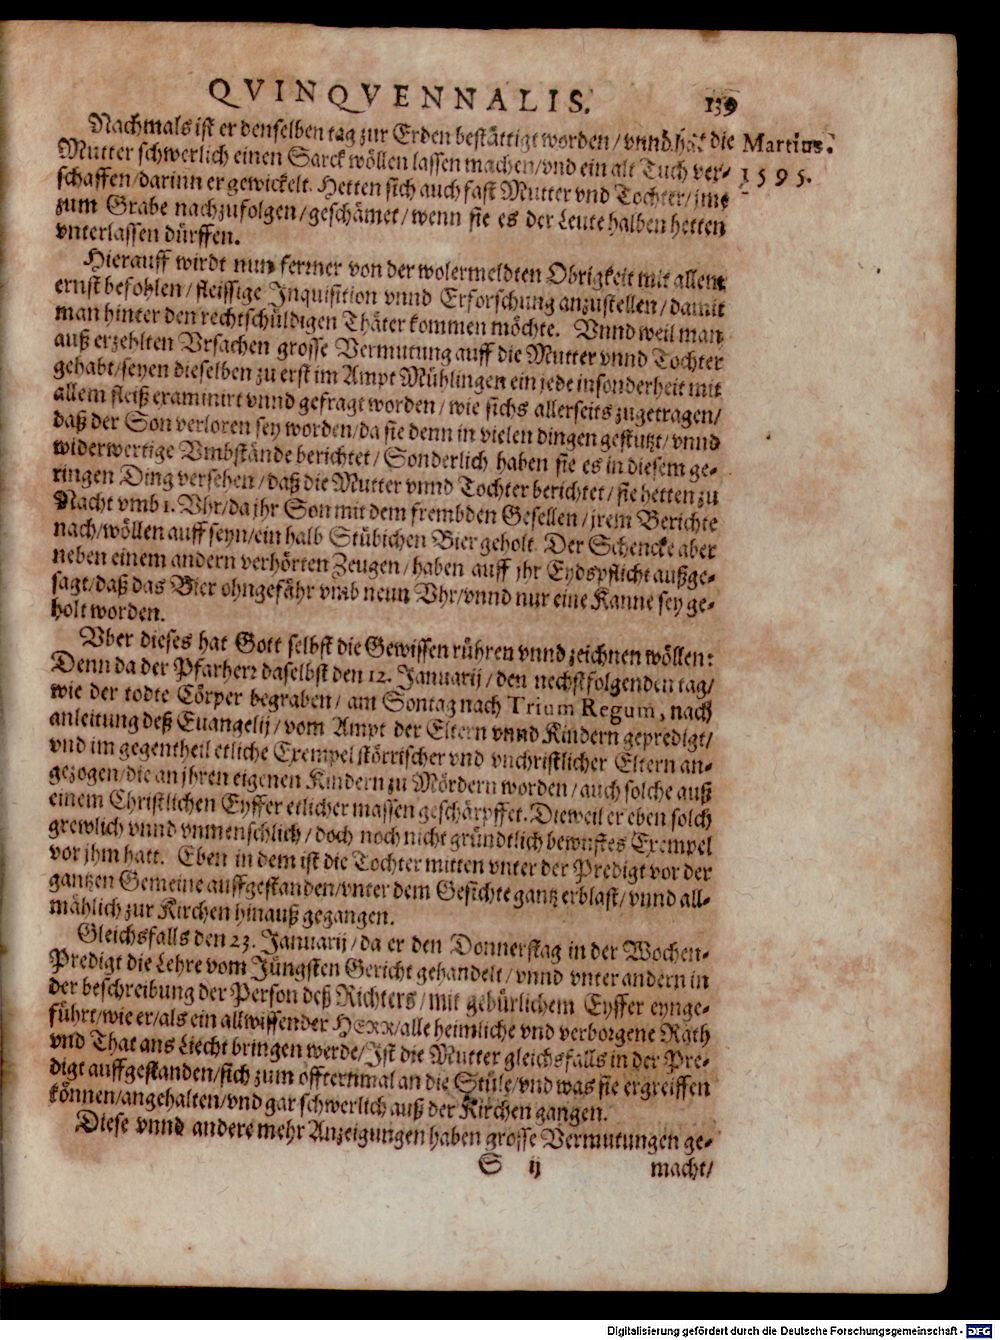 QVINQVENNALIS. 139
Nachmals ist er denselben tag zur Erden bestättigt worden / vnnd hat die
Martius.
Mutter schwerlich einen Sarck wöllen lassen machen/vnd ein alt Tuch ver-
1595.
schaffen/darinn er gewickelt. Hetten sich auch fast Mutter vnd Tochter/jme
zum Grabe nachzufolgen/geschämet/wenn sie es der Leute halben hetten
vnterlassen dürffen.
Hierauff wirdt nun ferrner von der wolermeldten Obrigkeit mit allem
ernst befohlen/fleissige Inquisition vnnd Erforschung anzustellen/damit
man hinter den rechtschüldigen Thäter kommen möchte. Vnnd weil man
auß erzehlten Vrsachen grosse Vermutung auff die Mutter vnnd Tochter
gehabt/seyen dieselben zu erst im Ampt Mühlingen ein jede insonderheit mit
allem fleiß examinirt vnnd gefragt worden / wie sichs allerseits zugetragen/
daß der Son verloren sey worden/da sie denn in vielen dingen gestutzt/vnnd
widerwertige Vmbstände berichtet/Sonderlich haben sie es in diesem ge-
ringen Ding versehen/daß die Mutter vnnd Tochter berichtet/sie hetten zu
Nacht vmb 1. Vhr/da jhr Son mit dem frembden Gesellen/jrem Berichte
nach/wöllen auff seyn/ein halb Stübichen Bier geholt. Der Schencke aber
neben einem andern verhörten Zeugen/haben auff jhr Eydspflicht außge-
sagt/daß das Bier ohngefähr vmb neun Vhr/vnnd nur eine Kanne sey ge-
holt worden.
Vber dieses hat Gott selbst die Gewissen rühren vnnd zeichnen wöllen:
Denn da der Pfarherr daselbst den 12. Januarij/den nechstfolgenden tag/
wie der todte Cörper begraben/ am Sontag nach Trium Regum, nach
anleitung deß Euangelij/vom Ampt der Eltern vnnd Kindern gepredigt/
vnd im gegentheil etliche Exempel störrischer vnd vnchristlicher Eltern an-
gezogen/die an jhren eigenen Kindern zu Mördern worden/auch solche auß
einem Christlichen Eyffer etlicher massen geschärpffet. Dieweil er eben solch
grewlich vnnd vnmenschlich/doch noch nicht gründtlich bewustes Exempel
vor jhm hatt. Eben in dem ist die Tochter mitten vnter der Predigt vor der
gantzen Gemeine auffgestanden/vnter dem Gesichte gantz erblast/vnnd all-
mählich zur Kirchen hinauß gegangen.
Gleichsfalls den 23. Januarij/da er den Donnerstag in der Wochen-
Predigt die Lehre vom Jüngsten Gericht gehandelt/vnnd vnter andern in
der beschreibung der Person deß Richters/mit gebürlichem Eyffer eynge-
führt/wie er/als ein allwissender HERR/alle heimliche vnd verborgene Räth
vnd That ans Liecht bringen werde/Ist die Mutter gleichsfalls in der Pre-
digt auffgestanden/sich zum offternmal an die Stüle/vnd was sie ergreiffen
können/angehalten/vnd gar schwerlich auß der Kirchen gangen.
Diese vnnd andere mehr Anzeigungen haben grosse Vermutungen ge-
S ij macht/
Digitalisierung gefördert durch die Deutsche Forschungsgemeinschaft - DFG